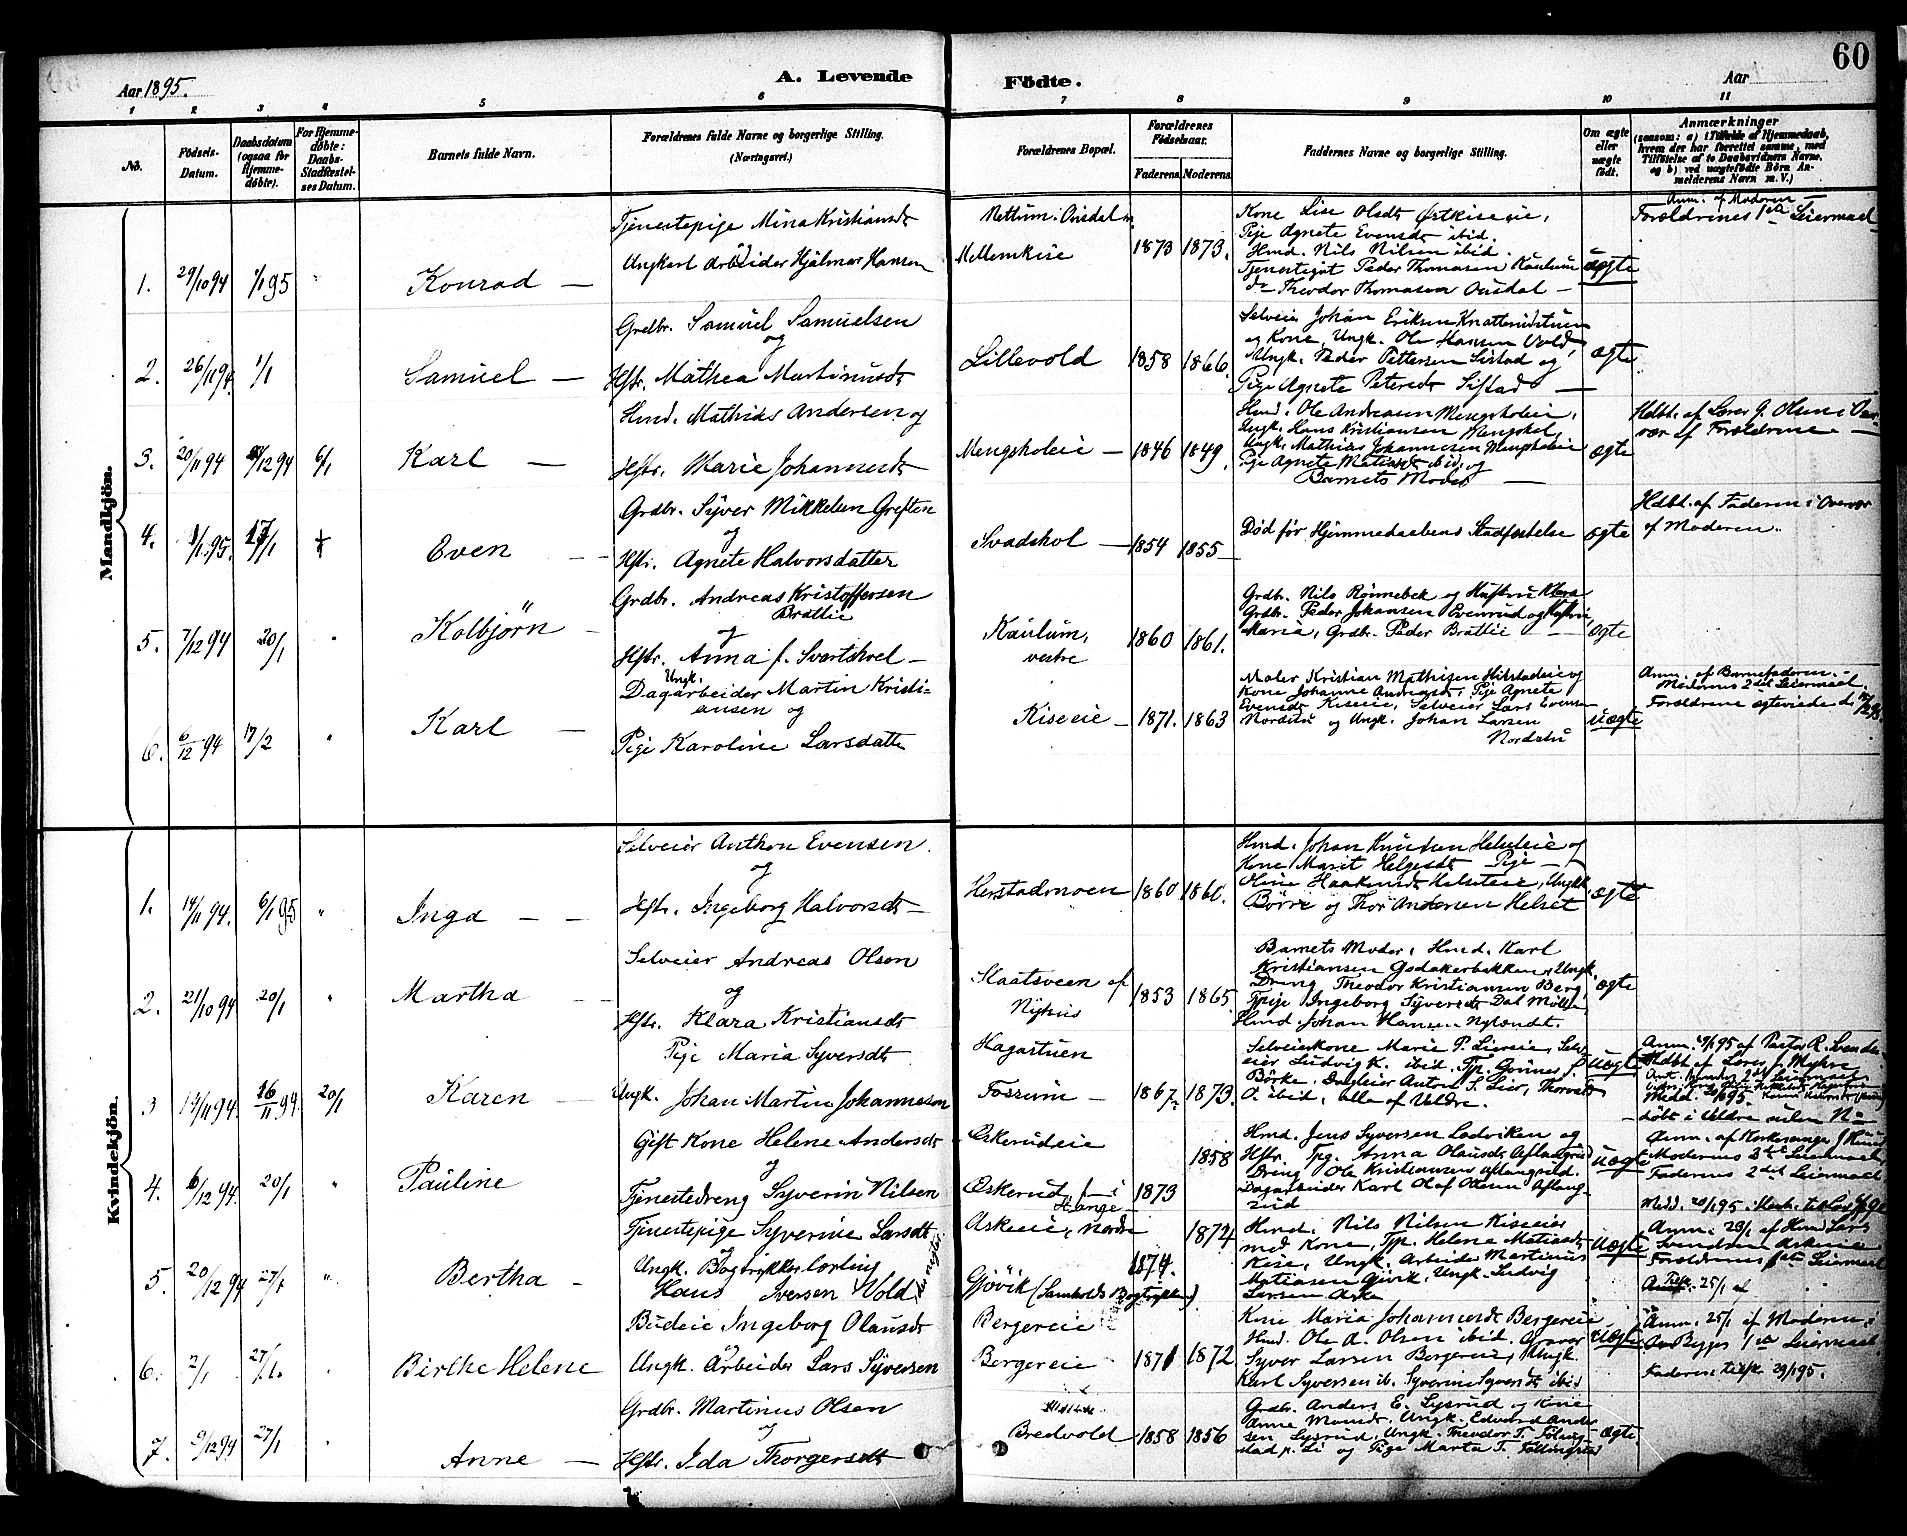 60
Aar 1895.
A. Levende Födte.
Aar
1 2 3 4 5 6 7 8 9 10 11
No.
Födsels-Datum.
Daabsdatum (ogsaa for Hjemme-döbte).
For Hjemme-döbte: Daabs-Stadfæstel-ses Datum.
Barnets fulde Navn.
Forældrenes fulde Navne og borgerlige Stilling. (Næringsvei.)
Forældrenes Bopæl.
Forældrenes Födselsaar.
Faderens. Moderens.
Faddernes Navne og borgerlige Stilling.
Om ægte eller uægte født.
Anmærkninger
(saasom: a) i Tilfælde af Hjemmedaab, hvem der har forrettet samme, med Tilföielse af to Daabsvidners Navne, og b) ved uægtefödte Börn Anmelderens Navn m. V.)
Mandkjön.
1. 29/10 94 1/1 95 " Konrad —
Tjenestepige Mina Kristiansdt
Ungkarl Arbeider Hjalmar Hansen
Mellemkise
1873 1873.
Kone Lise Olsdt Østkiseeie,
Pige Agnete Evensdt ibid.
Hmd. Nils Nilsen ibid.
Tjenestegut Peder Thomasen Kaulum
do Theodor Thomasen —
uægte
Anm. af Moderen
Forældrenes 1ste Leiermaal
2. 26/11 94. 1/1 Samuel —
Grdbr. Samuel Samuelsen
og
Hstr. Mathea Martinusdt
Lillevold
1858 1866.
Selveier Johan Eriksen
og Kone, Ungk. Ole Hansen Vold,
Ungk. Peder Pettersen Sistad og
Pige Agnete Petersdt Sistad —
ægte
3. 20/11 94 /12 94 6/1 Karl —
Hmd. Mathias Andersen og
Hstr. Marie Johannesdt
Mengsholeie —
1846 1849.
Hmd. Ole Andreasen Mengsholeie,
Ungk. Hans Kristiansen Mengshol,
Ungk. Mathias Johannesen Mengsholeie
Pige Agnete Matiasdt ibid, og
Barnets Moder —
ægte
Hdbt. af Lærer J. Olsen i Over-
vær af Forældrene —
4. /1 95. 17/1 + Even —
Grdbr. Syver Mikkelsen Greften
og
Hstr. Agnete Halvorsdatter
Svadshol —
1854 1855 —
Død før Hjemmedaabens Stadfæstelse
ægte
Hdbt. af Faderen i Overvær
af Moderen.
5. 7/12 94 20/1 " Kolbjörn —
Grdbr. Andreas Kristoffersen
Brattlie
og
Hstr. Anna f. Svartshvel —
Kaulum,
vestre
1860 1861.
Grdb. Nils Rönnebek og Hustru Klara
Grdbr. Peder Johansen Evenrud og Hustru
Maria, Grdbr. Peder Brattlie —
ægte
6. 6/12 94 17/2 " Karl —
Ungk.
Dagarbeider Martin Kristi-
ansen og
Pige Karoline Larsdatte
Kiseeie —
1871. 1863
Maler Kristian Mathisen og
Kone Johanne Andreasdt, Pige Agnete
Evensdt Kiseeie, Selveier Lars Even-
Nordstu og Ungk. Johan Larsen
Nordstu
uægte
Anm. af Barnefaderen. —
Moderens 2det Leiermaal.
Forældrene ægteviede d.
Kvindekjön.
1. 14/11 94. 6/1 95 " Inga — —
Selveier Anthon Evensen.
og
Hstr. Ingeborg Halvorsdt —
Herstadmoen
1860 1860.
Hmd. Johan Knudsen Helseteie og
Kone Marit Helgesdt Pige —
Oline Haakensdt Helseteie, Ungk.
Börre og Thor Andersen Helset
ægte
2. 21/10 94 20/1 " Martha —
Selveier Andreas Olson
og
Hstr. Klara Kristiansdt
Staatsveen af
Nyhus
1853 1865.
Barnets Moder, Hmd. Karl
Kristiansen Godakerbakken, Ungk.
Dreng Theodor Kristiansen Berg,
Pige Ingeborg Syversdt Dal Möllen
Hmd. Johan Hansen Nylændt.
ægte
3 /11 94 16/11 94 20/1 Karen —
Pige Maria Syversdt
Ungk. Johan Martin Johannesson
Hagastuen
Fossum —
1867. 1873.
Selveierkone Marie P. Liereie, Selv-
eier Ludvig K. ibid. Tp. Gunnes
Börke. Anton S. Lier, Thorvald
O. ibid, alle af Veldre.
uægte
Anm. /1 95 af Pastor R. Svends.
Hdbt. af Lærer J. Myhre
döbt i Veldre uden No
4. 6/12 94. 20/1 " Pauline
Gift Kone Helene Andersdt
og
Tjenestedreng Syverin Nilsen
Øskerudeie
Øskerud
1858
1873
Hmd. Jens Syversen Ladviken og
Hstr. Tpg. Anna Olausdt Aflangrud
Dreng Ole Kristiansen Aflangrud.
Dagarbeider Karl Olaf Olsen Aflang-
rud
uægte
Moderens 3die Leiermaal
Faderens 2det Leiermaal
Medd. 20/1 95
5. 20/12 94 27/1 " Bertha —
Tjenestepige Syverine Larsdt
og
Ungk. Bogtrykkerlærling
Hans Iversen Vold
Askeeie, nordre
Gjövik (Samholds Bogtrykkeri)
1872
1874.
Hmd. Nils Nilsen Kiseeier
med Kone, Tp. Helene Matiasdt
Kise, Ungk. Arbeider Martinus
Matiasen Gjövik, Ungk. Ludvig
Larsen Aske
uægte
Anm. 23/1 af Hmd Lars
Svendsen Askeeie
Forældrenes 1ste Leiermaal
6. 2/1 27/1. " Birthe Helene
Budeie Ingeborg Olausdt
og
Ungk. Arbeider Lars Syversen
Bergereie
Bergereie
1871 1872
Kone Maria Johannesdt Bergereie
Hmd. Ole A. Olsen ibid. Gravar
Syver Larsen Bergereie, Ungk.
Karl Syversen ib. Syverine Syversdt ibid
uægte
Anm. 25/1 af Moderen.
Begges 1ste Leiermaal.
Faderen 29/1 95.
7. 9/12 94 27/1 Anne —
Grdbr. Martinus Olsen
og
Hstr. Ida Thorgersdt
Bredvold
1858 1856
Grdbr. Anders E. Lysrud og Kone
Anne Monsdt. Ungk. Edvard Ander-
sen Lysrud, Ungk. Theodor T.
stad p. Li og Pige Marta T. Föllingstad
ægte.